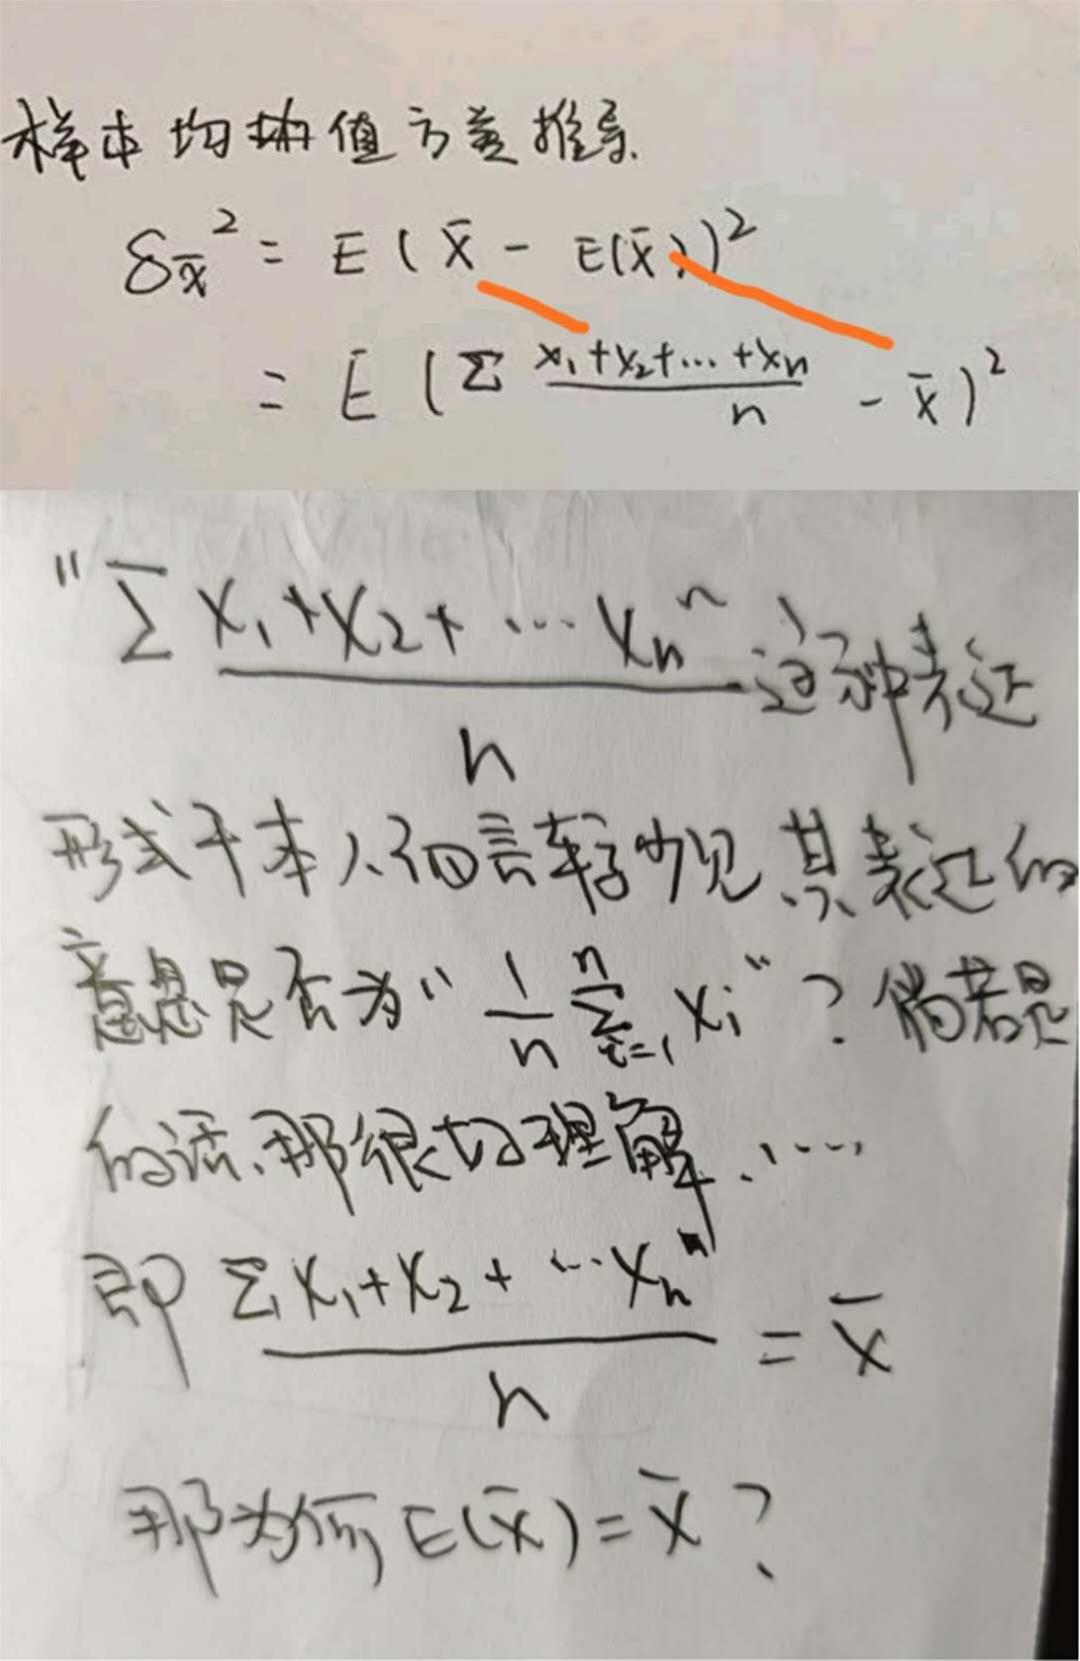 样本均值方差推导.
δx̄² = E(x̄ - E(x̄))²
= E(Σ x₁+x₂+…+xₙ / n - x̄)²
"Σ x₁+x₂+…xₙ / n" 这种表达
形式于本人而言较少见.其表达的
意思是否为"1/n Σⁿᵢ₌₁ xᵢ"?倘若是
的话、那很好理解.…
即 Σ x₁+x₂+…xₙ" / n = x̄
那为何 E(x̄) = x̄ ?